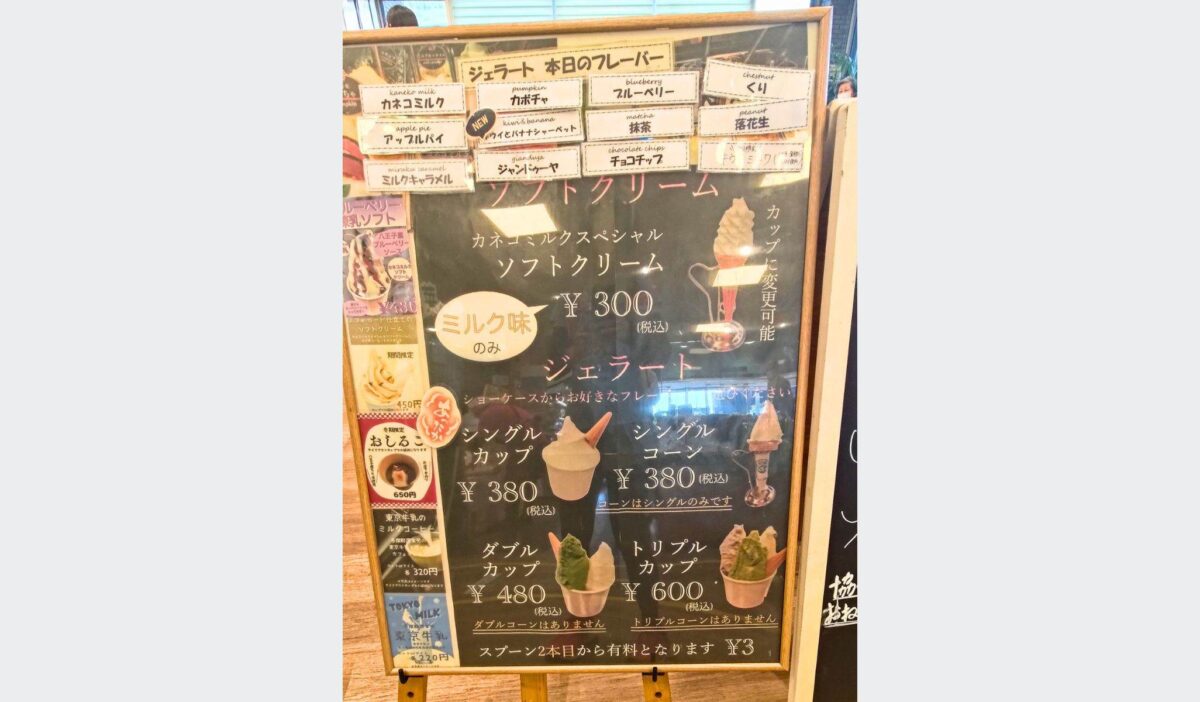 ジェラート 本日のフレーバー
kaneko milk
カネコミルク
pumpkin
カボチャ
blueberry
ブルーベリー
chestnut
くり
apple pie
アップルパイ
NEW
kiwi&banana
ウイとバナナシャーベット
matcha
抹茶
peanut
落花生
ミルクキャラメル
gianduja
ジャンドゥーヤ
chocolate chips
チョコチップ
ソフトクリーム
カネコミルクスペシャル
ソフトクリーム
¥ 300
(税込)
カップに変更可能
ミルク味
のみ
ジェラート
ショーケースからお好きなフレー
ください
シングル
カップ
¥ 380
(税込)
シングル
コーン
¥ 380 (税込)
コーンはシングルのみです
ダブル
カップ
¥ 480
(税込)
ダブルコーンはありません
トリプル
カップ
¥ 600
(税込)
トリプルコーンはありません
スプーン2本目から有料となります ¥3
ルーベリー
乳ソフト
八王子産
ブルーベリー
ソース
ソフトクリーム
期間限定
450円
冬期限定
おしるこ
650円
東京牛乳の
ミルクコーヒー
320円
TOKYO
MILK
東京牛乳
220円
協
おね